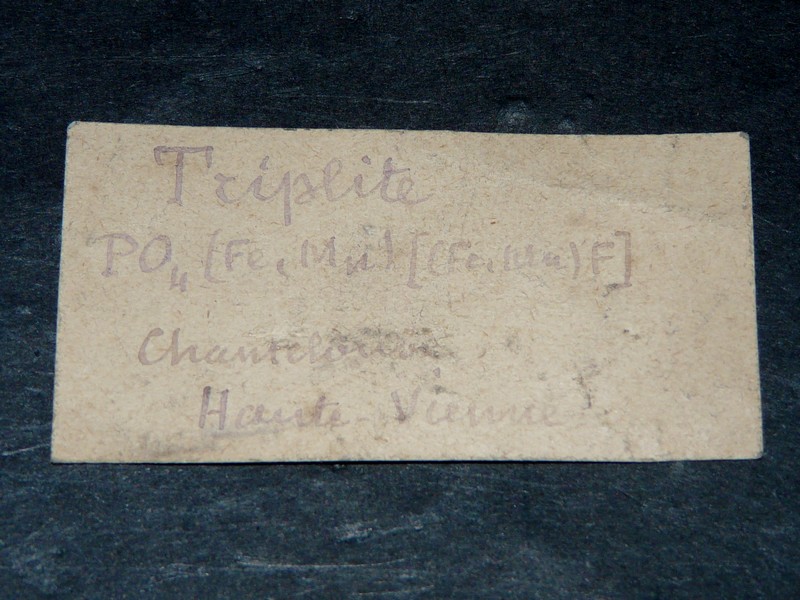 Triplite
PO₄ (Fe, Mn) [(Fe, Mn) F]
Chanteloube
Haute-Vienne